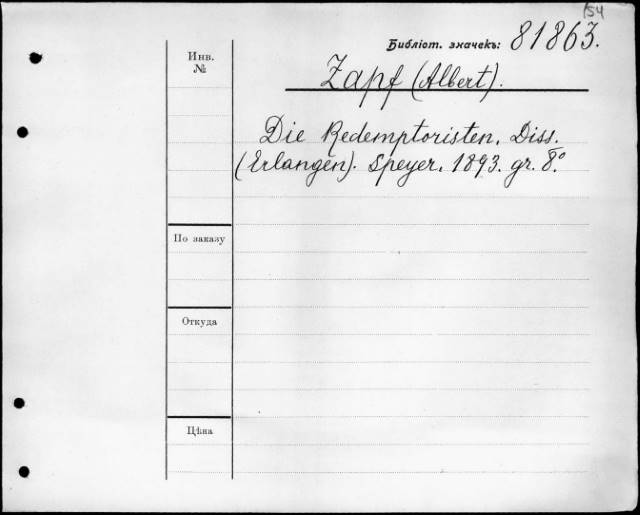 154
Библіот. значекъ: 81863.
Инв.
№
Zapf (Albert).
Die Redemptoristen. Diss.
(Erlangen). Speyer. 1893. gr. 8°.
По заказу
Откуда
Цѣна